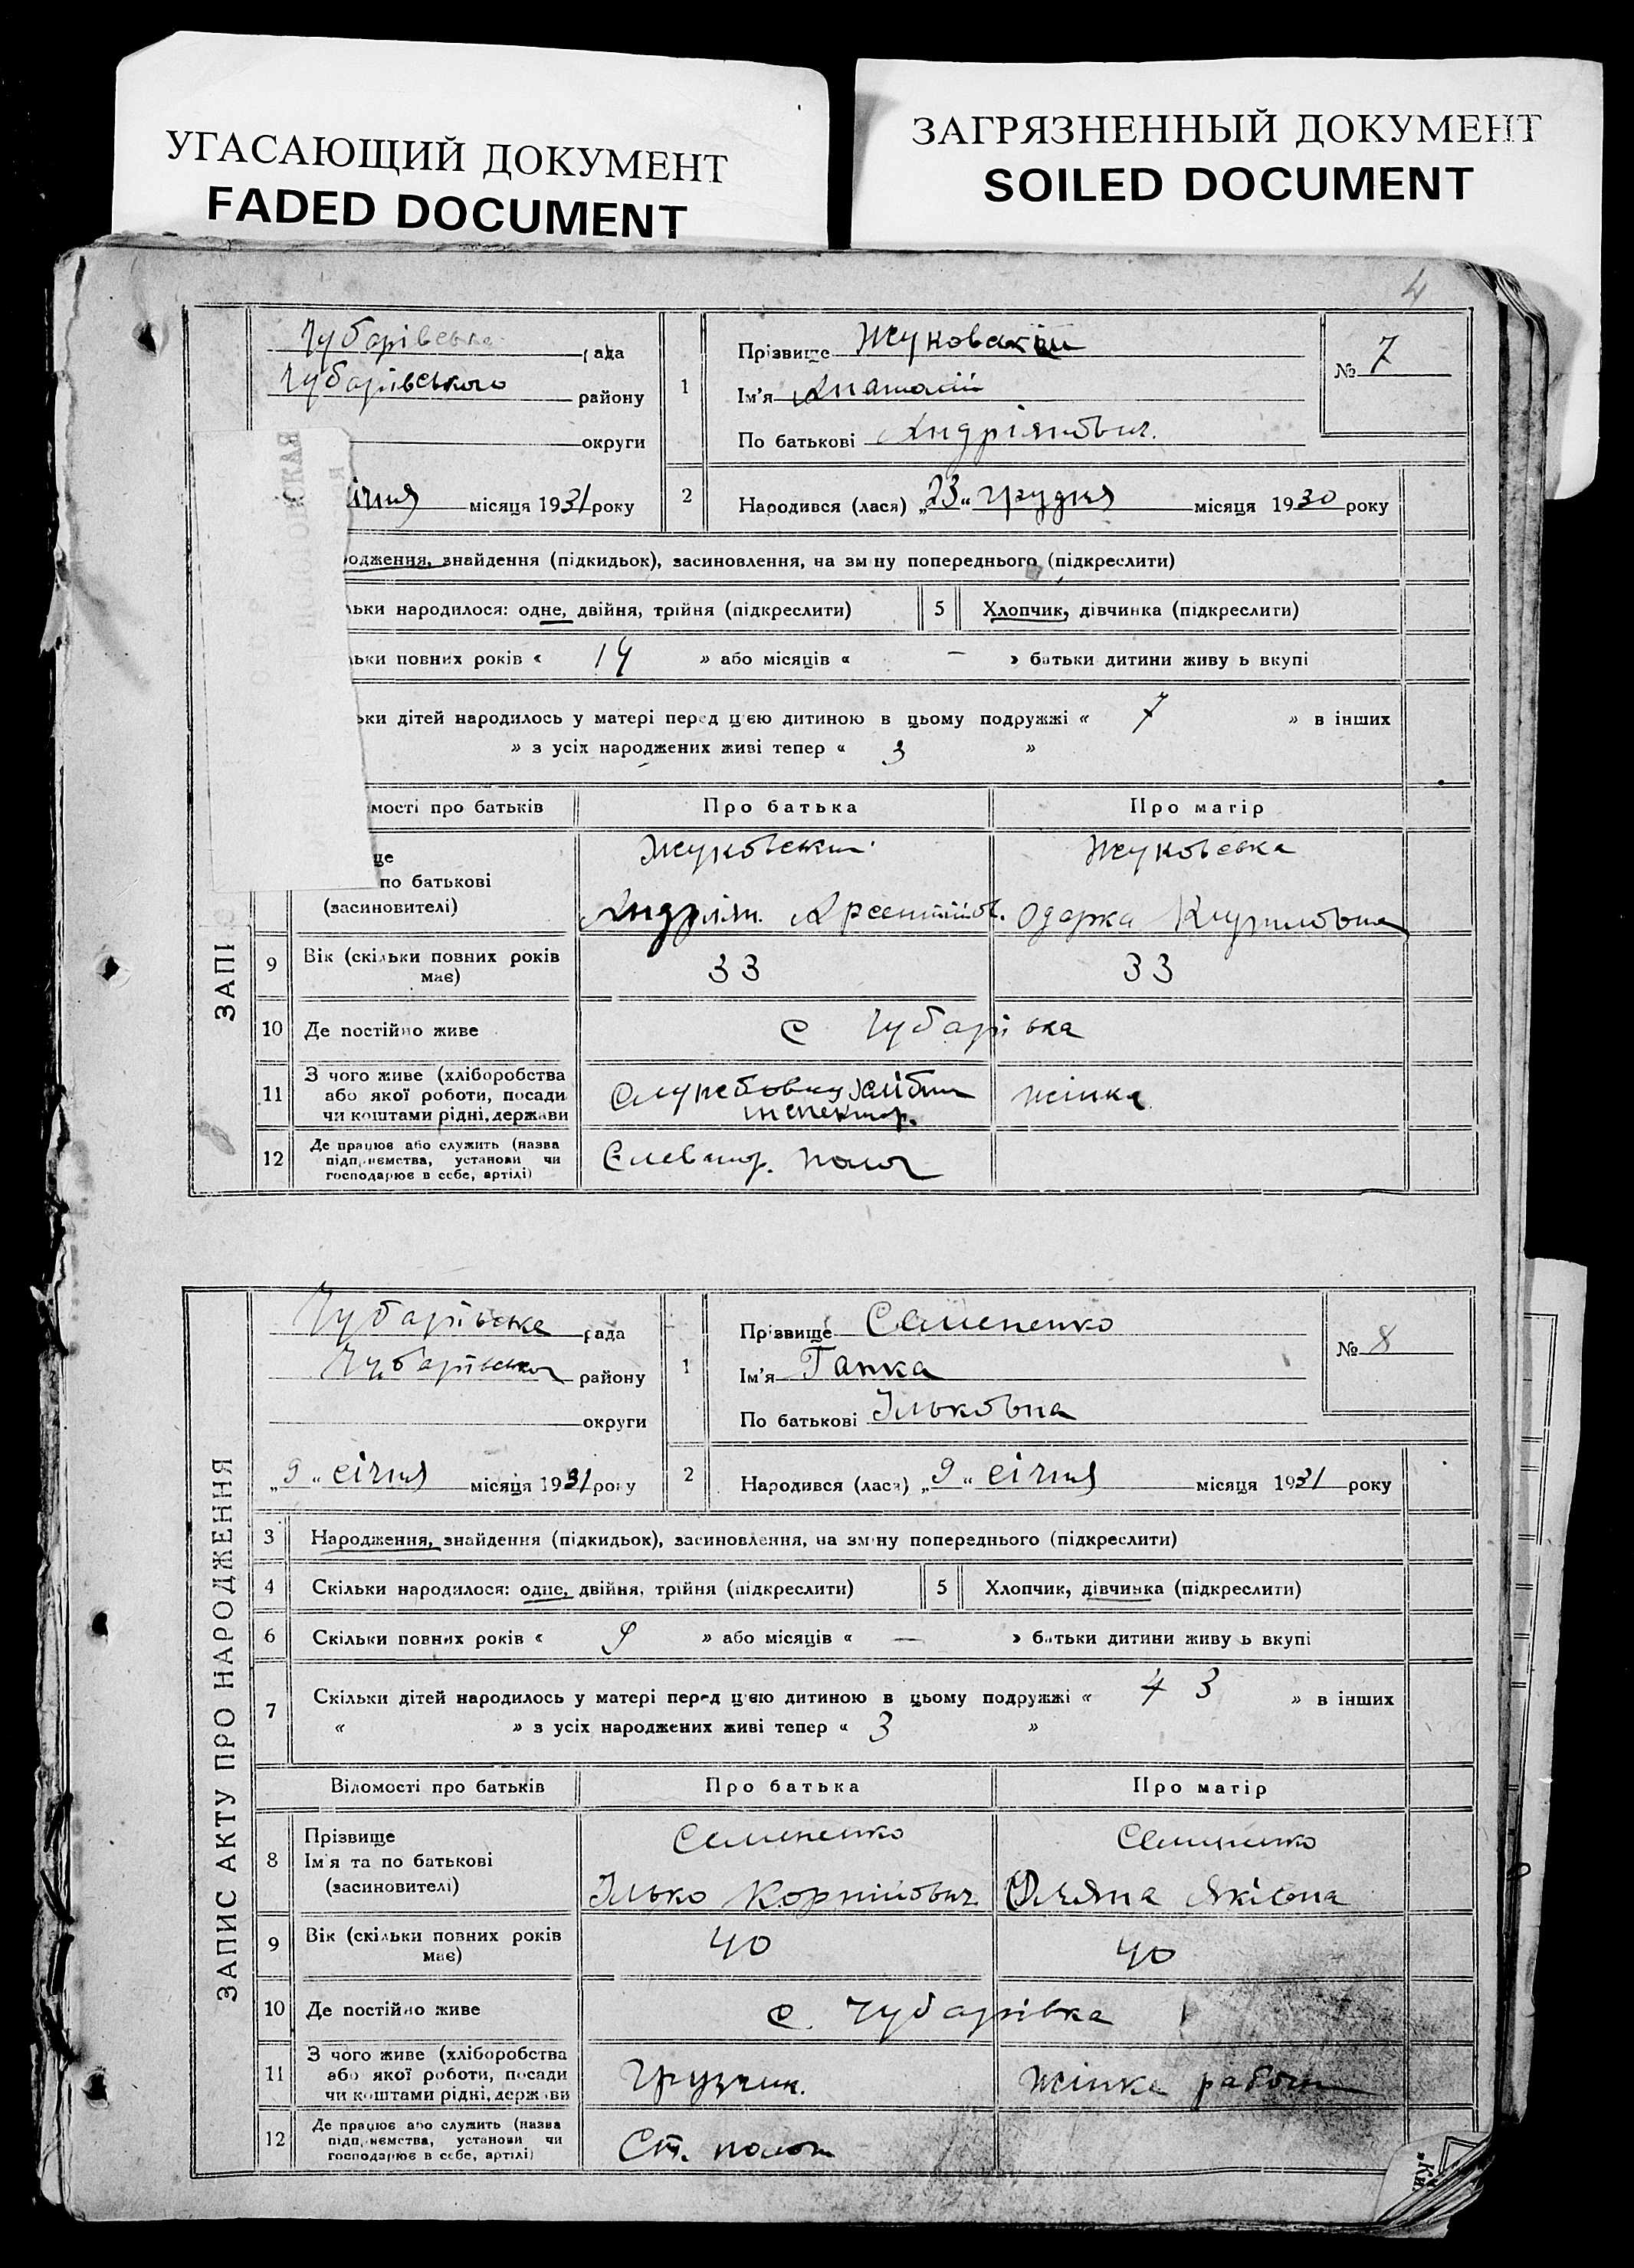 УГАСАЮЩИЙ ДОКУМЕНТ
FADED DOCUMENT
ЗАГРЯЗНЕННЫЙ ДОКУМЕНТ
SOILED DOCUMENT
4
Чубарівська рада
Чубарівського району
округи
січня місяця 1931 року
1
Прізвище Жуковський
Ім'я Анатолій
По батькові Андріянович.
№ 7
2
Народився (лася) „23“ грудня місяця 1930 року
родження, знайдення (підкидьок), засиновлення, на зміну попереднього (підкреслити)
льки народилося: одне, двійня, трійня (підкреслити)
5 Хлопчик, дівчинка (підкреслити)
льки повних років « 14 » або місяців « — » батьки дитини живуть вкупі
ьки дітей народилось у матері перед цією дитиною в цьому подружжі « 7 » в інших
» з усіх народжених живі тепер « 3 »
мості про батьків
Про батька
Про матір
ще
по батькові
(засиновителі)
Жуковський
Андріян. Арсентійов.
Жуковська
Одарка Кириловна
ЗАПІ
9 Вік (скільки повних років має)
33
33
10 Де постійно живе
с Чубарівка
11 З чого живе (хліборобства
або якої роботи, посади
чи коштами рідні, держави
Службовець
жінка
12 Де працює або служить (назва
підприємства, установи чи
господарює в себе, артілі)
Елеватор. Полог
Чубарівська рада
Чубарівськог району
округи
„9“ січня місяця 1931 року
1
Прізвище Семененко
Ім'я Ганка
По батькові Ільковна
№ 8
2
Народився (лася) „9“ січня місяця 1931 року
3 Народження, знайдення (підкидьок), засиновлення, на зміну попереднього (підкреслити)
4 Скільки народилося: одне, двійня, трійня (підкреслити)
5 Хлопчик, дівчинка (підкреслити)
6 Скільки повних років « 9 » або місяців « — » батьки дитини живуть вкупі
7 Скільки дітей народилось у матері перед цією дитиною в цьому подружжі « 4 3 » в інших
« » з усіх народжених живі тепер « 3 »
Відомості про батьків
Про батька
Про матір
8 Прізвище
Ім'я та по батькові
(засиновителі)
Семененко
Ілько Корнійович
Семененко
Уляна Яківна
9 Вік (скільки повних років має)
40
40
10 Де постійно живе
с. Чубарівка
11 З чого живе (хліборобства
або якої роботи, посади
чи коштами рідні, держави
Грузчик.
жінка
12 Де працює або служить (назва
підприємства, установи чи
господарює в себе, артілі)
Ст. полог
ЗАПИС АКТУ ПРО НАРОДЖЕННЯ